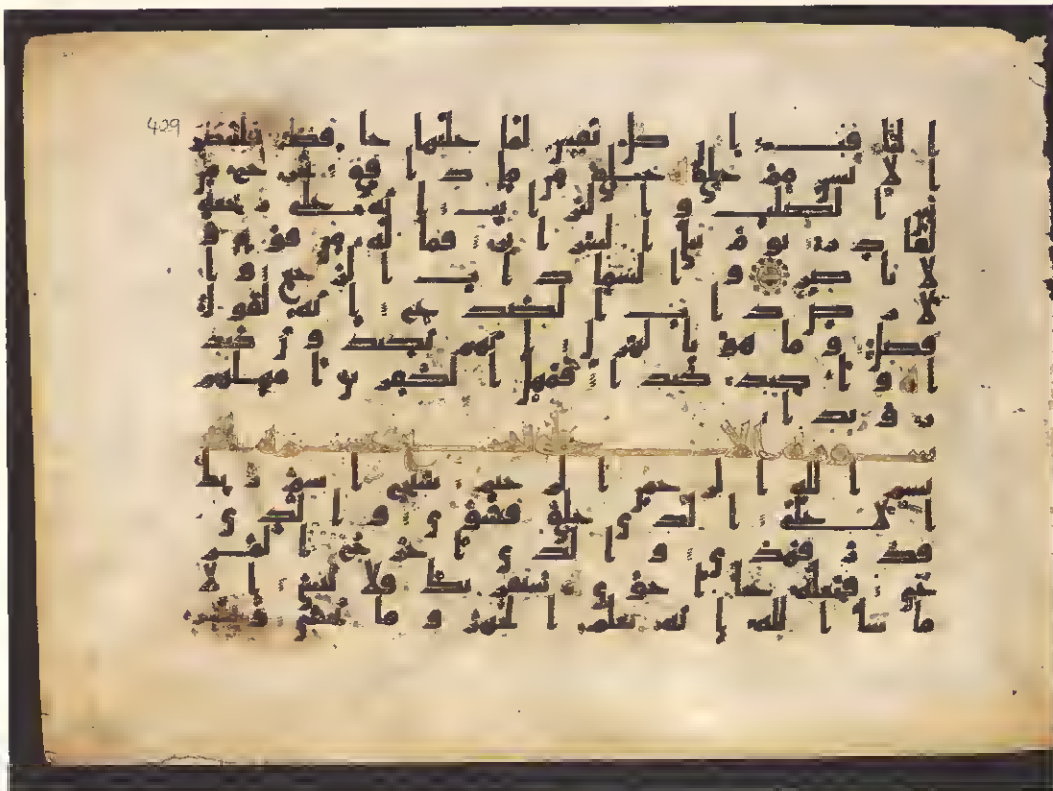 429
الثاقب ان كل نفس لما عليها حافظ فلينظر
الانسن مم خلق خلق من ما دافق يخرج من
بين الصلب والترايب انه على رجعه
لقادر يوم تبلى السراير فما له من قوة و
لا ناصر والسما ذات الرجع وا
لارض ذات الصدع انه لقول
فصل وما هو بالهزل انهم يكيدون كيد
ا واكيد كيدا فمهل الكفرين امهلهم
رويدا
بسم الله الرحمن الرحيم سبح اسم ربك
الاعلى الذي خلق فسوي والذي
قدر فهدي والذي اخرج المر
عي فجعله غثا احوي سنقريك فلا تنسي الا
ما شا الله انه يعلم الجهر وما يخفي ونيسر